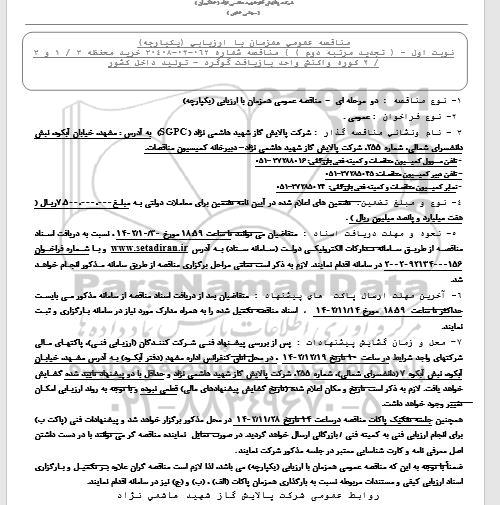 مناقصه عمومی همزمان با ارزیابی (یکپارچه)
نوبت اول - ( تجدید مرتبه دوم ) ( مناقصه شماره ۰۶۲-۰۲-۳۰۴۰۸ خرید محفظه ۳ / ۱ و ۲
/ ۲ کوره واکنش واحد بازیافت گوگرد - تولید داخل کشور
۱- نوع مناقصه : دو مرحله ای - مناقصه عمومی همزمان با ارزیابی (یکپارچه)
۲- نوع فراخوان : عمومی .
۳- نام ونشانی مناقصه گذار : شرکت پالایش گاز شهید هاشمی نژاد (SGPC) به آدرس : مشهد، خیابان آبکوه، نبش
دانشسرای شمالی، شماره ۲۵۵، شرکت پالایش گاز شهید هاشمی نژاد- دبیرخانه کمیسیون مناقصات.
- تلفن مسوول کمیسیون مناقصات و کمیته فنی بازرگانی: ۳۷۲۸۸۰۱۶-۰۵۱
- تلفن دبیر کمیسیون مناقصات: ۳۷۲۸۵۰۳۵-۰۵۱
- نمابر کمیسیون مناقصات و کمیته فنی بازرگانی: ۳۷۲۸۵۰۳۴-۰۵۱
۴- نوع و مبلغ تضمین: تضمین های اعلام شده در آیین نامه تضمین برای معاملات دولتی به مبلغ ۷،۵۰۰،۰۰۰،۰۰۰ ریال (
هفت میلیارد و پانصد میلیون ریال ) .
۵- نحوه و مهلت دریافت اسناد : متقاضیان می توانند تا ساعت ۱۸:۵۹ مورخ ۱۴۰۲/۱۰/۳۰ ، نسبت به دریافت اسناد
مناقصه از طریق سامانه تدارکات الکترونیکی دولت (سامانه ستاد) به آدرس www.setadiran.ir و با شماره فراخوان
۲۰۰۲۰۹۲۱۳۴۰۰۰۱۵۶ در سامانه اقدام نمایند. لازم به ذکر است تمامی مراحل برگزاری مناقصه از طریق سامانه مذکور انجام خواهد
شد.
۶- آخرین مهلت ارسال پاکت های پیشنهاد : متقاضیان بعد از دریافت اسناد مناقصه از سامانه مذکور می بایست
حداکثر تا ساعت ۱۸:۵۹ مورخ ۱۴۰۲/۱۱/۱۴ ، اسناد مناقصه تکمیل شده را به همراه مدارک مورد نیاز در سامانه بارگزاری و ثبت
نمایند.
۷- محل و زمان گشایش پیشنهادات : پس از بررسی پیشنهاد فنی شرکت کنندگان (ارزیابی فنی)، پاکتهای مالی
شرکتهای واجد شرایط در ساعت ۱۰ تاریخ ۱۴۰۲/۱۲/۱۹ ، در محل اتاق کنفرانس اداره مشهد (دفتر آبکوه) به آدرس مشهد، خیابان
آبکوه، نبش آبکوه ۷ (دانشسرای شمالی)، شماره ۲۵۵، شرکت پالایش گاز شهید هاشمی نژاد و حداقل با دو پیشنهاد تایید شده گشایش
خواهد یافت. لازم به ذکر است تاریخ و مکان اعلام شده (تاریخ گشایش پیشنهادهای مالی) قطعی نبوده و با توجه به روند ارزیابی امکان
تغییر وجود خواهد داشت.
همچنین جلسه تفکیک پاکات مناقصه درساعت ۱۴ تاریخ ۱۴۰۲/۱۱/۲۸ در محل مذکور برگزار خواهد شد و پیشنهادات فنی (پاکت ب)
برای انجام ارزیابی فنی به کمیته فنی / بازرگانی ارسال خواهد گردید. در صورت تمایل نماینده مناقصه گر می توانند با در دست داشتن
اصل معرفی نامه و کارت شناسایی معتبر در جلسه مذکور شرکت نمایند.
ضمناً با توجه به این که مناقصه عمومی همزمان با ارزیابی (یکپارچه) می باشد، لذا لازم است مناقصه گران علاوه بر تکمیل و بارگزاری
اسناد ارزیابی کیفی و مستندات مربوطه نسبت به بارگذاری همزمان پاکات (الف) ، (ب) و (ج) نیز در سامانه اقدام نمایند.
روابط عمومی شرکت پالایش گاز شهید هاشمی نژاد